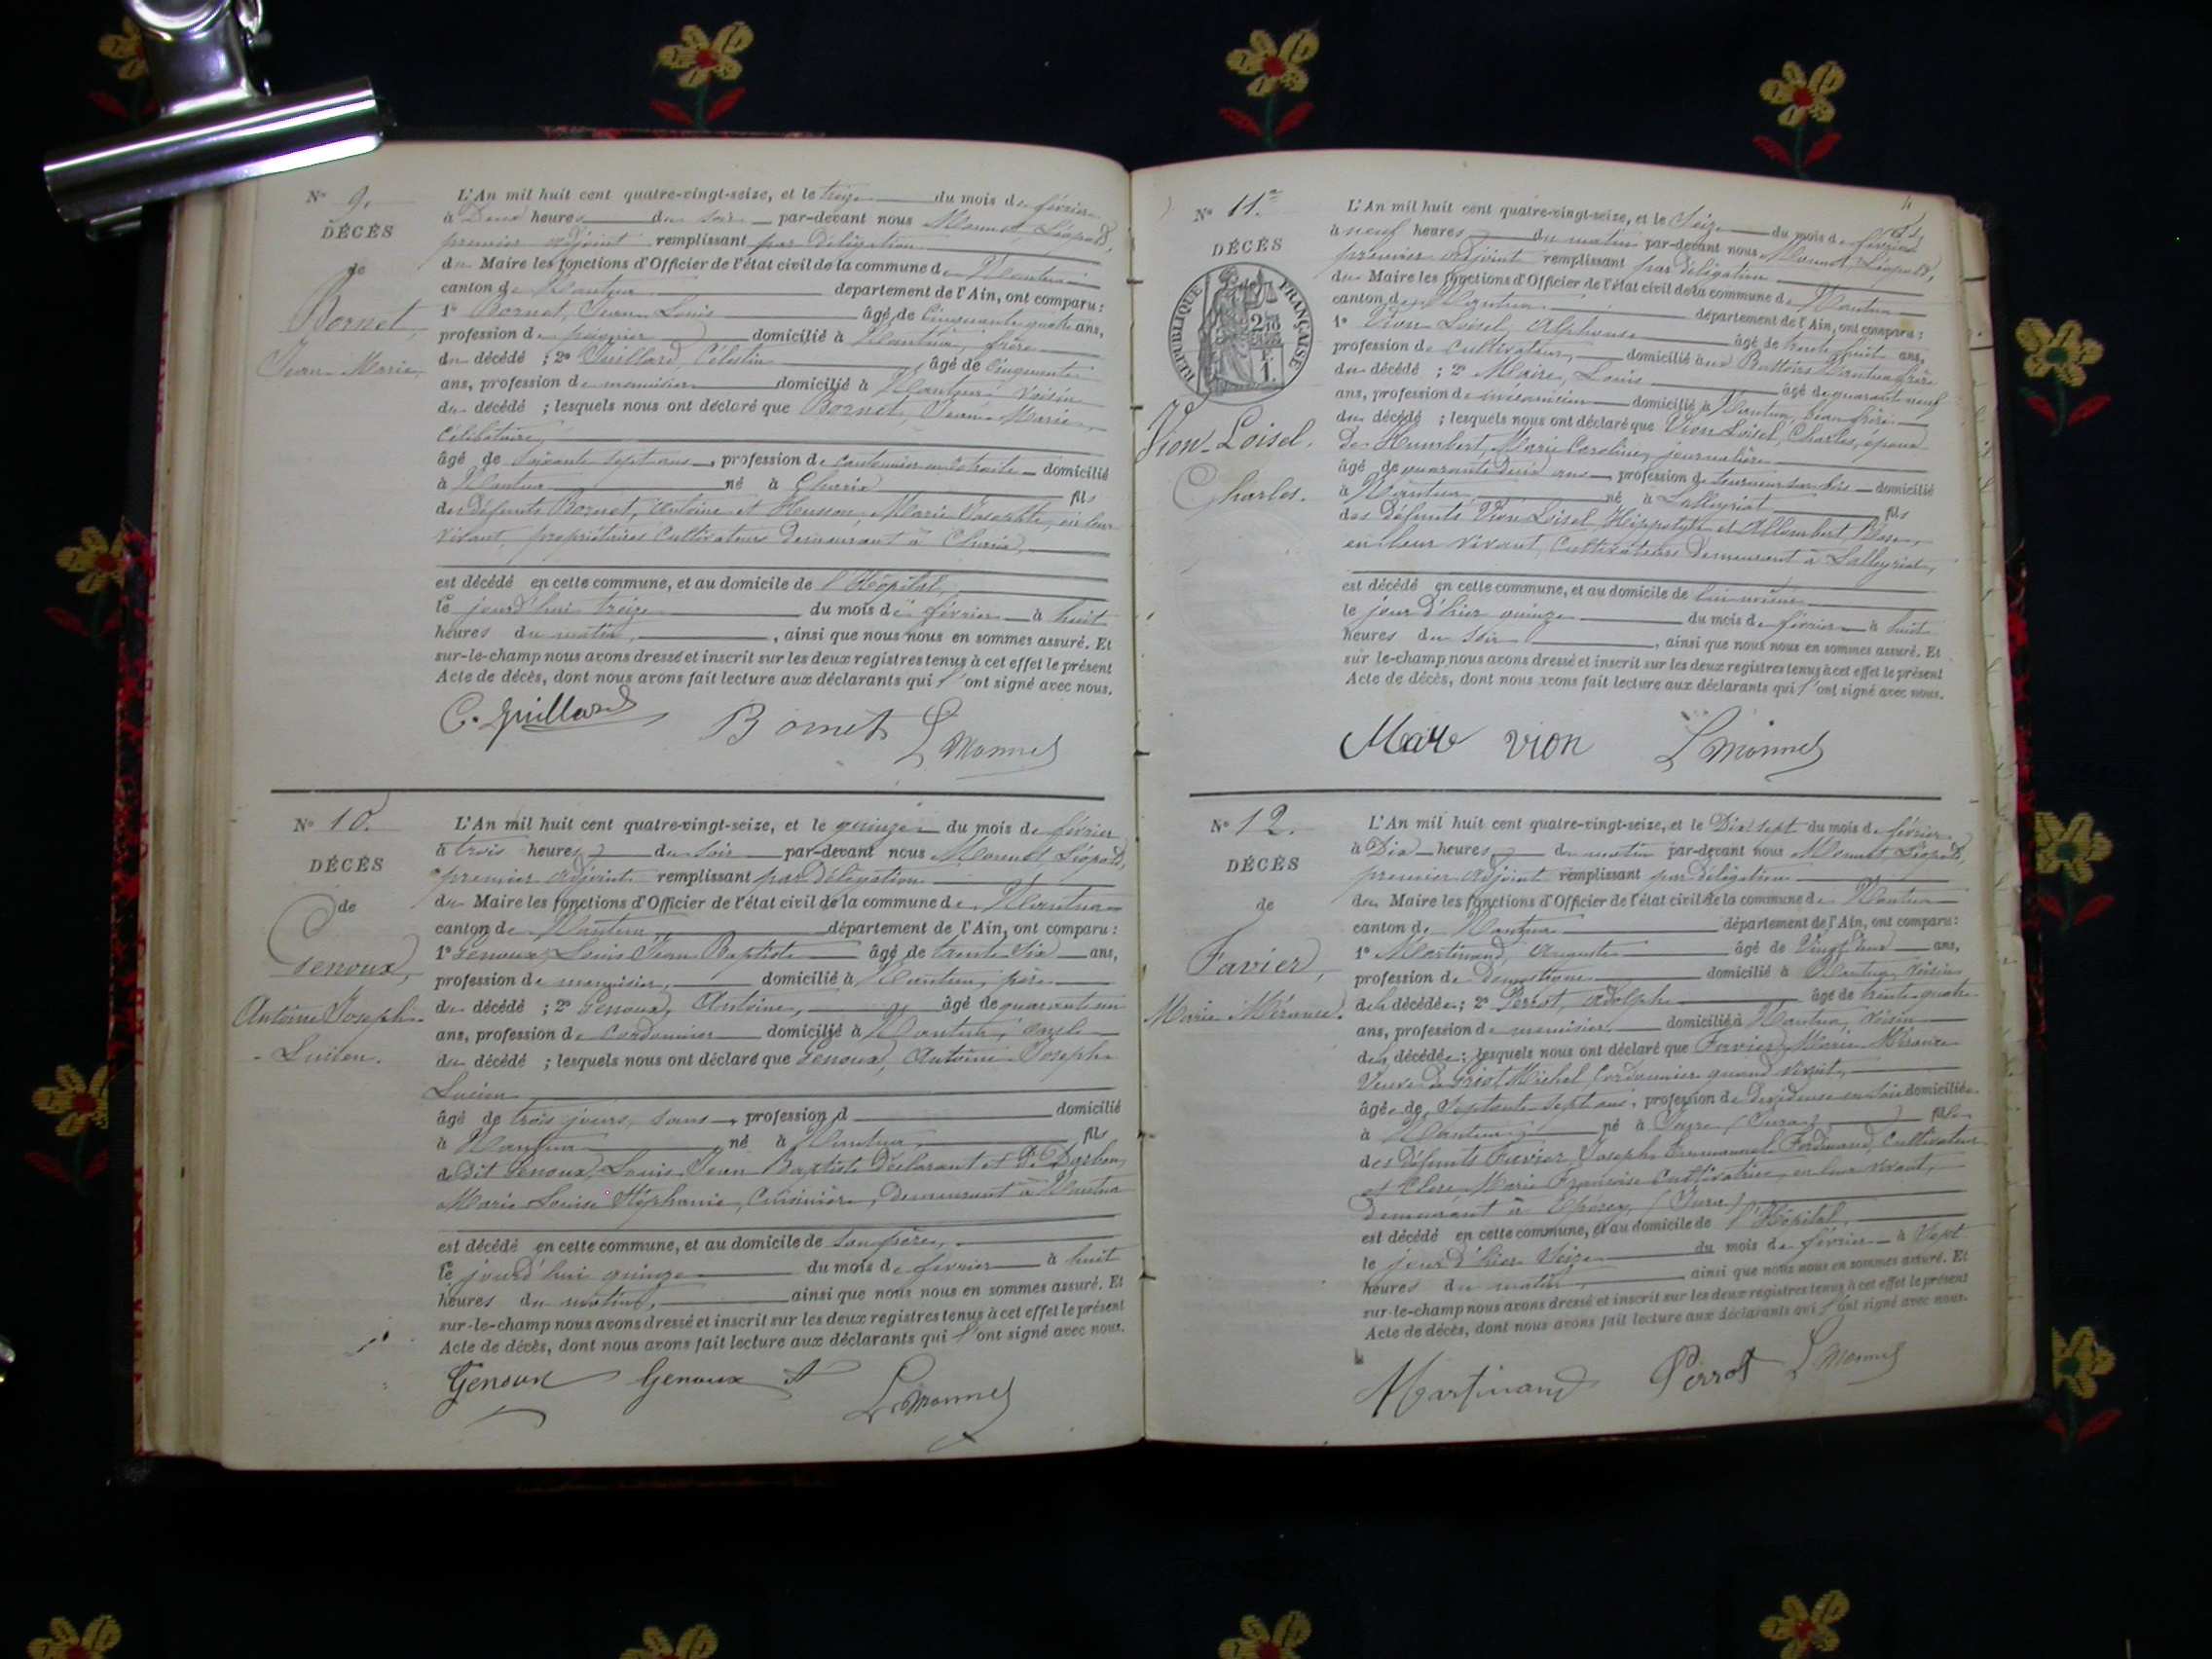 N° 9.
DÉCÈS
de
Bornet,
Jean-Marie.
L'An mil huit cent quatre-vingt-seize, et le treize du mois de février
à Deux heures du soir par-devant nous Monnet, Léopold,
premier adjoint remplissant par délégation
du Maire les fonctions d'Officier de l'état civil de la commune de Nantua
canton de Nantua département de l'Ain, ont comparu :
1° Bornet, Jean Louis âgé de Cinquante quatre ans,
profession de domicilié à Nantua, frère
du décédé ; 2° Juillard, Célestin âgé de Cinquante
ans, profession de menuisier domicilié à Nantua voisin
du décédé ; lesquels nous ont déclaré que Bornet, Jean-Marie,
Célibataire,
âgé de soixante sept ans, profession de cantonnier en retraite domicilié
à Nantua né à Charix fils
des défunts Bornet, Antoine et Husson, Marie Josephte, en leur
vivant, propriétaires Cultivateurs demeurant à Charix,
est décédé en cette commune, et au domicile de l'Hôpital,
le jourd'hui treize du mois de février à huit
heures du matin, ainsi que nous nous en sommes assuré. Et
sur-le-champ nous avons dressé et inscrit sur les deux registres tenus à cet effet le présent
Acte de décès, dont nous avons fait lecture aux déclarants qui l'ont signé avec nous.
C. Juillard Bornet L Monnet
N° 10.
DÉCÈS
de
Genoux,
Antoine Joseph
Lucien.
L'An mil huit cent quatre-vingt-seize, et le quinze du mois de février
à trois heures du soir par-devant nous Monnet Léopold,
premier adjoint remplissant par délégation
du Maire les fonctions d'Officier de l'état civil de la commune de Nantua
canton de Nantua département de l'Ain, ont comparu :
1° Genoux, Louis Jean Baptiste âgé de trente six ans,
profession de menuisier, domicilié à Nantua, père
du décédé ; 2° Genoux, Antoine, âgé de quarante un
ans, profession de Cordonnier domicilié à Nantua, oncle
du décédé ; lesquels nous ont déclaré que Genoux, Antoine Joseph
Lucien,
âgé de trois jours, sans profession d domicilié
à Nantua né à Nantua fils
de dit Genoux, Louis Jean Baptiste Déclarant et de Darbon,
Marie Louise Stéphanie, Cuisinière, demeurant à Nantua
est décédé en cette commune, et au domicile de son père,
le jourd'hui quinze du mois de février à huit
heures du matin, ainsi que nous nous en sommes assuré. Et
sur-le-champ nous avons dressé et inscrit sur les deux registres tenus à cet effet le présent
Acte de décès, dont nous avons fait lecture aux déclarants qui l'ont signé avec nous.
Genoux Genoux A L Monnet
4
N° 11.
DÉCÈS
RÉPUBLIQUE FRANÇAISE
Vion-Loisel,
Charles.
L'An mil huit cent quatre-vingt-seize, et le Seize du mois de février
à neuf heures du matin par-devant nous Monnet, Léopold,
premier adjoint remplissant par délégation
du Maire les fonctions d'Officier de l'état civil de la commune de Nantua
canton de Nantua département de l'Ain, ont comparu :
1° Vion-Loisel, Alphonse âgé de trente huit ans,
profession de cultivateur, domicilié aux Battoirs Nantua frère
du décédé ; 2° Maire, Louis âgé de quarante neuf
ans, profession de mécanicien domicilié à Nantua, beau frère
du décédé ; lesquels nous ont déclaré que Vion Loisel, Charles, époux
de Humbert, Marie Caroline, journalière
âgé de quarante deux ans profession de tourneur sur bois domicilié
à Nantua né à Lalleyriat fils
des défunts Vion Loisel, Hippolyte et Allombert Rose,
en leur vivant, Cultivateurs demeurant à Lalleyriat,
est décédé en cette commune, et au domicile de lui même
le jour d'hier quinze du mois de février à huit
heures du soir ainsi que nous nous en sommes assuré. Et
sur le-champ nous avons dressé et inscrit sur les deux registres tenus à cet effet le présent
Acte de décès, dont nous avons fait lecture aux déclarants qui l'ont signé avec nous.
Maire vion L Monnet
N° 12.
DÉCÈS
de
Favier,
Marie Mérance.
L'An mil huit cent quatre-vingt-seize, et le Dix sept du mois de février
à Dix heures du matin par-devant nous Monnet, Léopold,
premier adjoint remplissant par délégation
du Maire les fonctions d'Officier de l'état civil de la commune de Nantua
canton de Nantua département de l'Ain, ont comparu :
1° Martinand, Auguste âgé de Vingt deux ans,
profession de domestique domicilié à Nantua, voisin
de la décédée ; 2° Perrot, Adolphe âgé de trente quatre
ans, profession de menuisier domicilié à Nantua, voisin
de la décédée ; lesquels nous ont déclaré que Favier, Marie Mérance
Veuve de Michel Cordonnier quand vivait,
âgée de Septante sept ans, profession de dévideuse en soie domiciliée
à Nantua né à (Jura) fille
des défunts Favier, Joseph Emmanuel Ferdinand, Cultivateur
et Clerc Marie Françoise Cultivatrice, en leur vivant,
demeurant à (Jura)
est décédé en cette commune, et au domicile de l'Hôpital
le jour d'hier Seize du mois de février à Sept
heures du matin, ainsi que nous nous en sommes assuré. Et
sur-le-champ nous avons dressé et inscrit sur les deux registres tenus à cet effet le présent
Acte de décès, dont nous avons fait lecture aux déclarants qui l'ont signé avec nous.
Martinand Perrot L Monnet